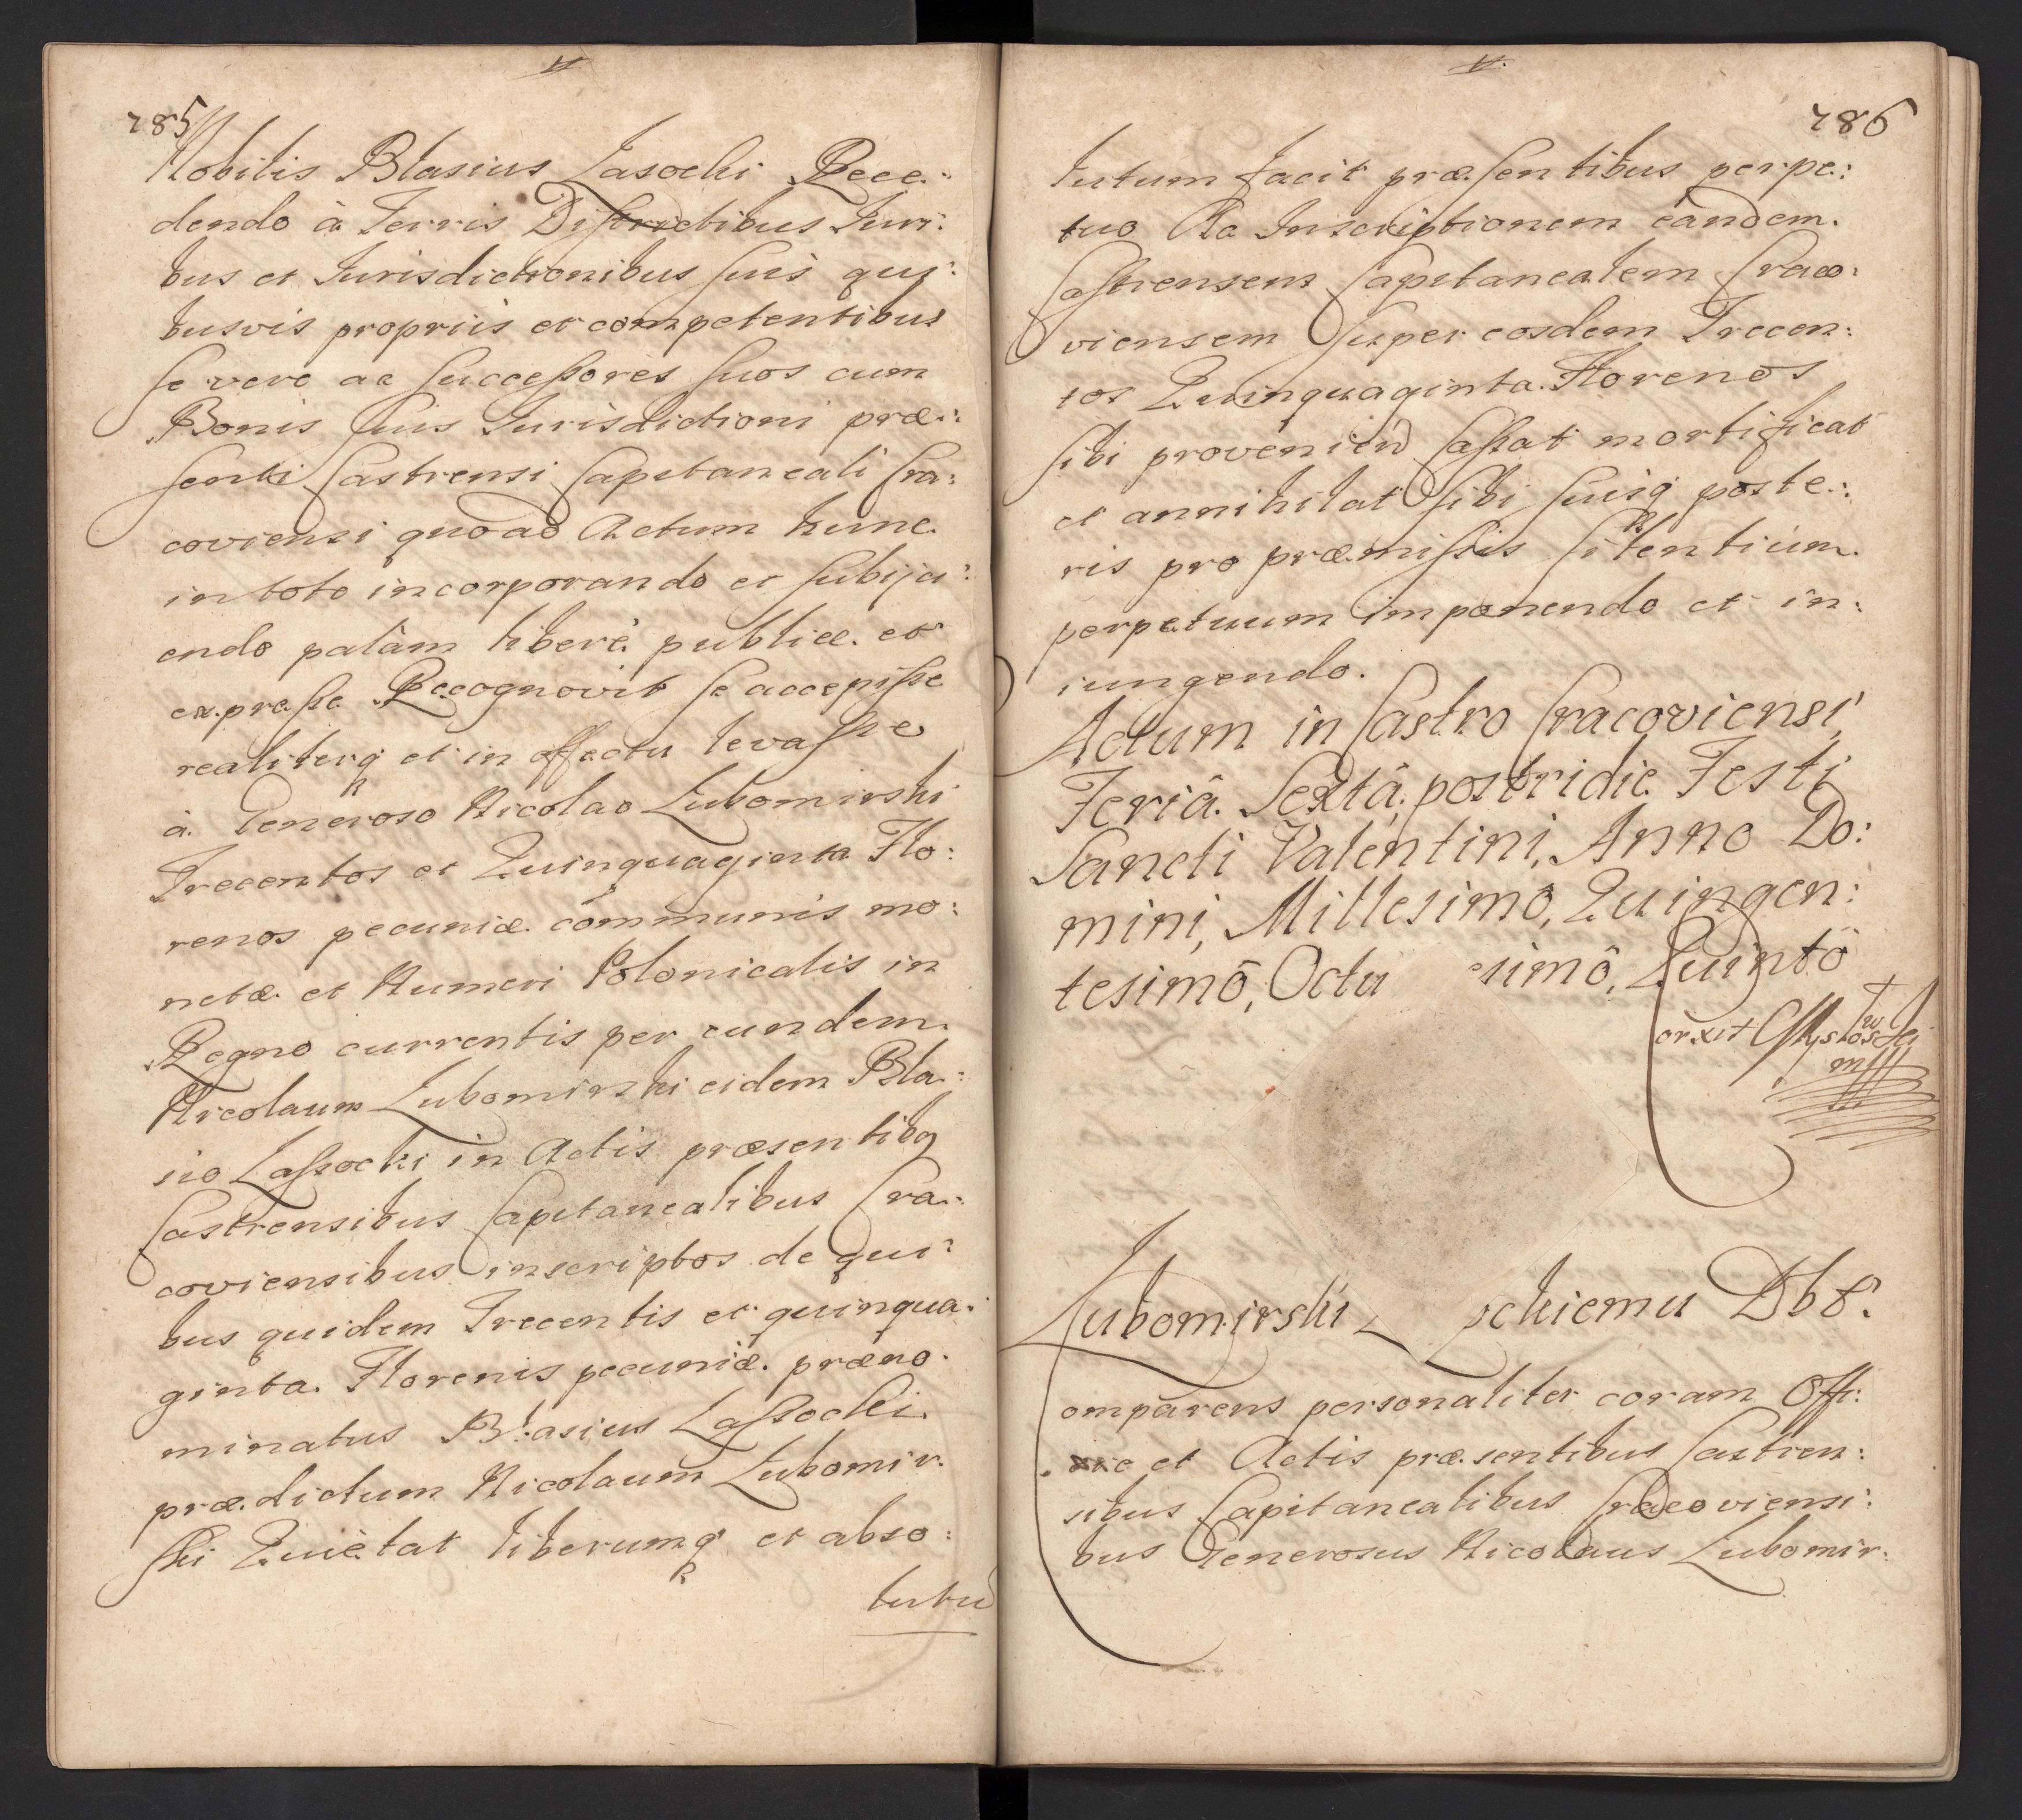 285
Nobilis Blasius Lasocki Rece:
dendo à Terris Districtibus Juri:
bus et Jurisdictionibus suis qui:
busvis propriis et competentibus
se vero ac successores suos cum
Bonis suis Jurisdictioni præ:
senti Castrensi Capitaneali Cra:
coviensi quoad Actum hunc
in toto incorporando et subijci:
endo palàm liberè publicæ et
expresse Recognovit se accepisse
realiterq et in effectu levasse
à Generoso Nicolao Lubomirski
Trecentos et Quinquaginta Flo:
renos pecuniæ communis mo:
netæ et Numeri Polonicalis in
Regno currentis per eundem
Nicolaum Lubomirski eidem Bla:
sio Lassocki in Actis præsentibq
Castrensibus Capitanealibus Cra:
coviensibus inscriptos de qui:
bus quidem Trecentis et quinqua:
ginta Florenis pecuniæ præno:
minatus Blasius Lassocki
prædictum Nicolaum Lubomir:
ski Quiètat liberumq et abso:
lutu
286
lutum facit præsentibus perpe:
tuo Ac Inscriptionem eandem
Castrensem Capitanealem Craco:
viensem super eosdem Trecen:
tos Quinquaginta Florenos
sibi provenien Cassat mortificat
et annihilat sibi suisq poste:
ris pro præmissis silentium
perpetuum imponendo et in:
iungendo.
Actum in Castro Cracoviensi,
Feriâ Sextâ postridie Festi
Sancti Valentini, Anno Do:
mini, Millesimo, Quingen:
tesimô, Octu esimô, Quintô
orxit
mpp
Lubomirski L schiemu Dbt.
omparens personaliter coram Offi:
cio et Actis præsentibus Castren:
sibus Capitanealibus Cracoviensi:
bus Generosus Nicolaus Lubomir: